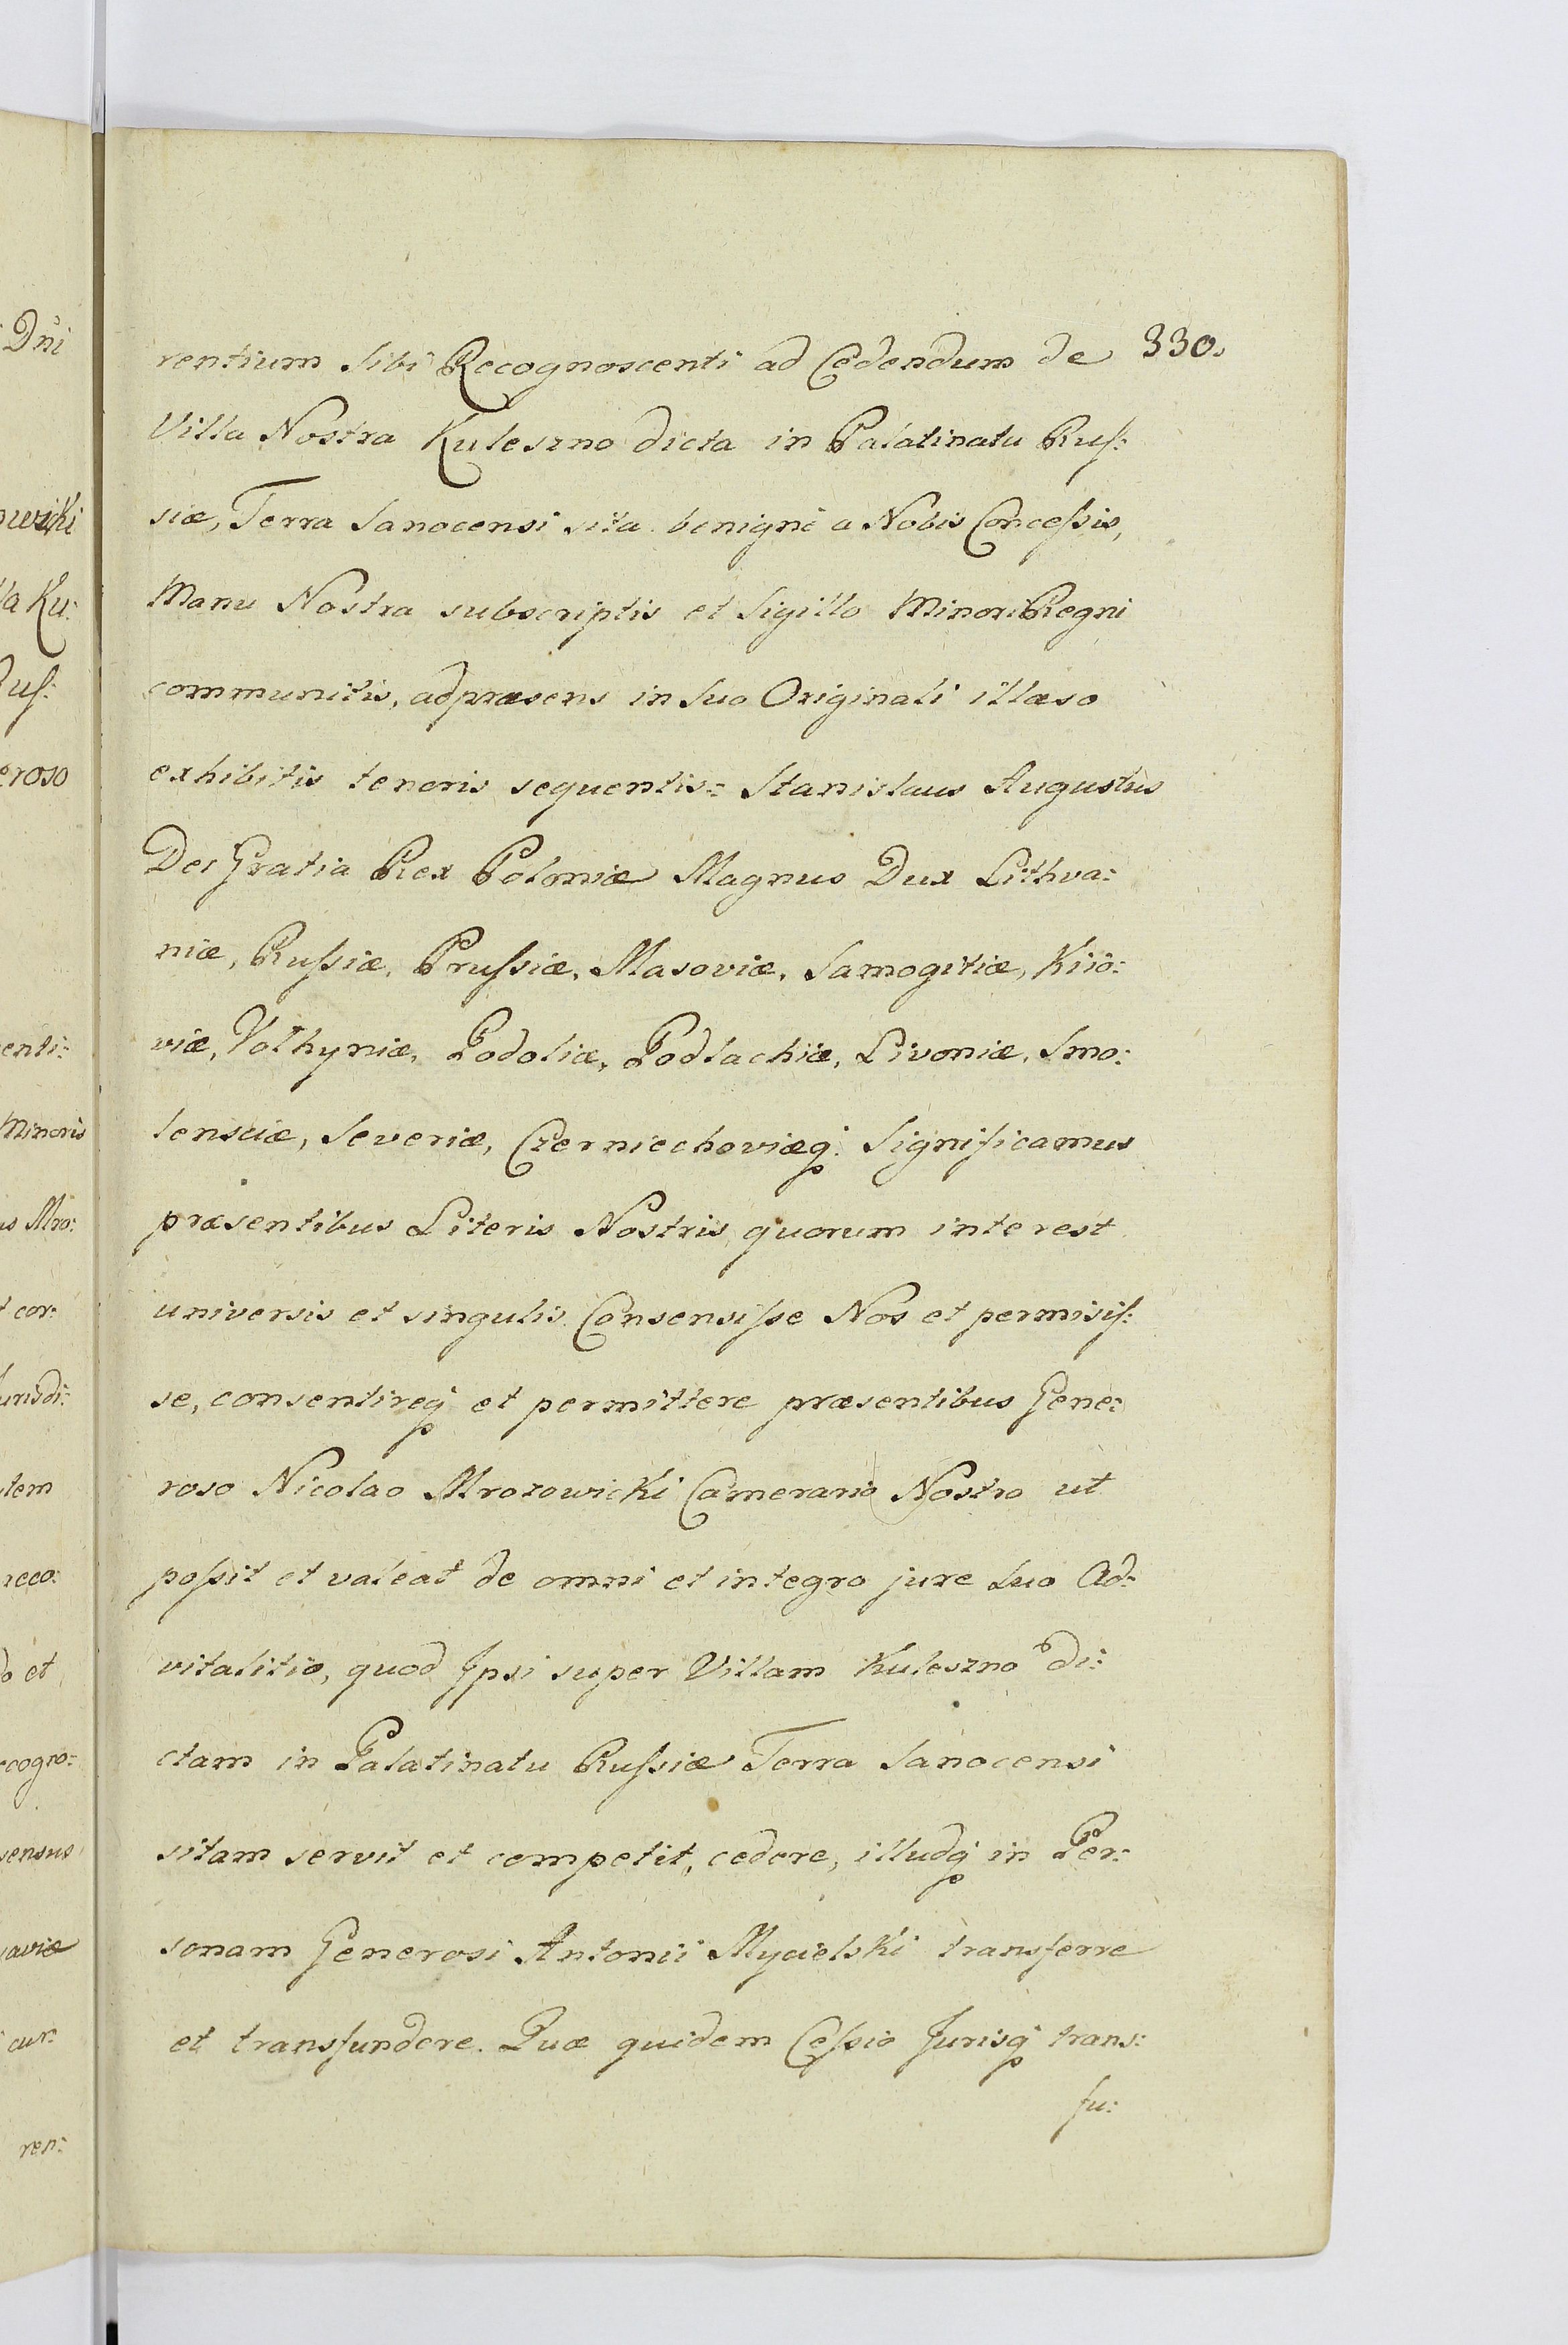 330.
rentium sibi Recognoscenti ad Cedendum de
Villa Nostra Kuleszno dicta in Palatinatu Rus:
siæ, Terra Sanocensi sita benigne a Nobis Concessis,
Manu Nostra subscriptis et Sigillo Minori Regni
communitis, ad præsens in suo Originali illæso
exhibitis tenoris sequentis: Stanislaus Augustus
Dei Gratia Rex Poloniæ Magnus Dux Lithva:
niæ, Russiæ, Prussiæ, Masoviæ, Samogitiæ, Kiio:
viæ, Volhyniæ, Podoliæ, Podlachiæ, Livoniæ, Smo:
lensciæ, Severiæ, Czerniechoviæq; Significamus
præsentibus Literis Nostris, quorum interest
universis et singulis. Consensisse Nos et permisis:
se, consentireq; et permittere præsentibus Gene:
roso Nicolao Mrozowicki Camerario Nostro ut
possit et valeat de omni et integro jure suo Ad:
vitalitio, quod Ipsi super Villam Kuleszno di:
ctam in Palatinatu Russiæ Terra Sanocensi
sitam servit et competit, cedere, illudq; in Per:
sonam Generosi Antonii Mycielski transferre
et transfundere. Quæ quidem Cessio Jurisq; trans:
fu:
Dni
owicki
la Ku:
Rus:
eroso
enti:
Minoris
us Mro:
t cor:
Jurisdi:
utem
reco:
do et
ecogno:
sensus
aviæ
cur:
ren: